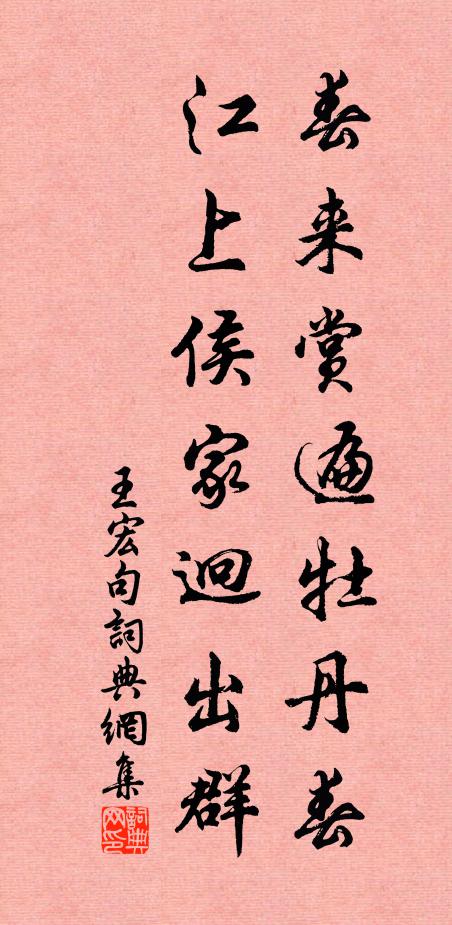 春来赏遍牡丹春
江上侯家迥出群
王宏句詞典網集
詞典网印